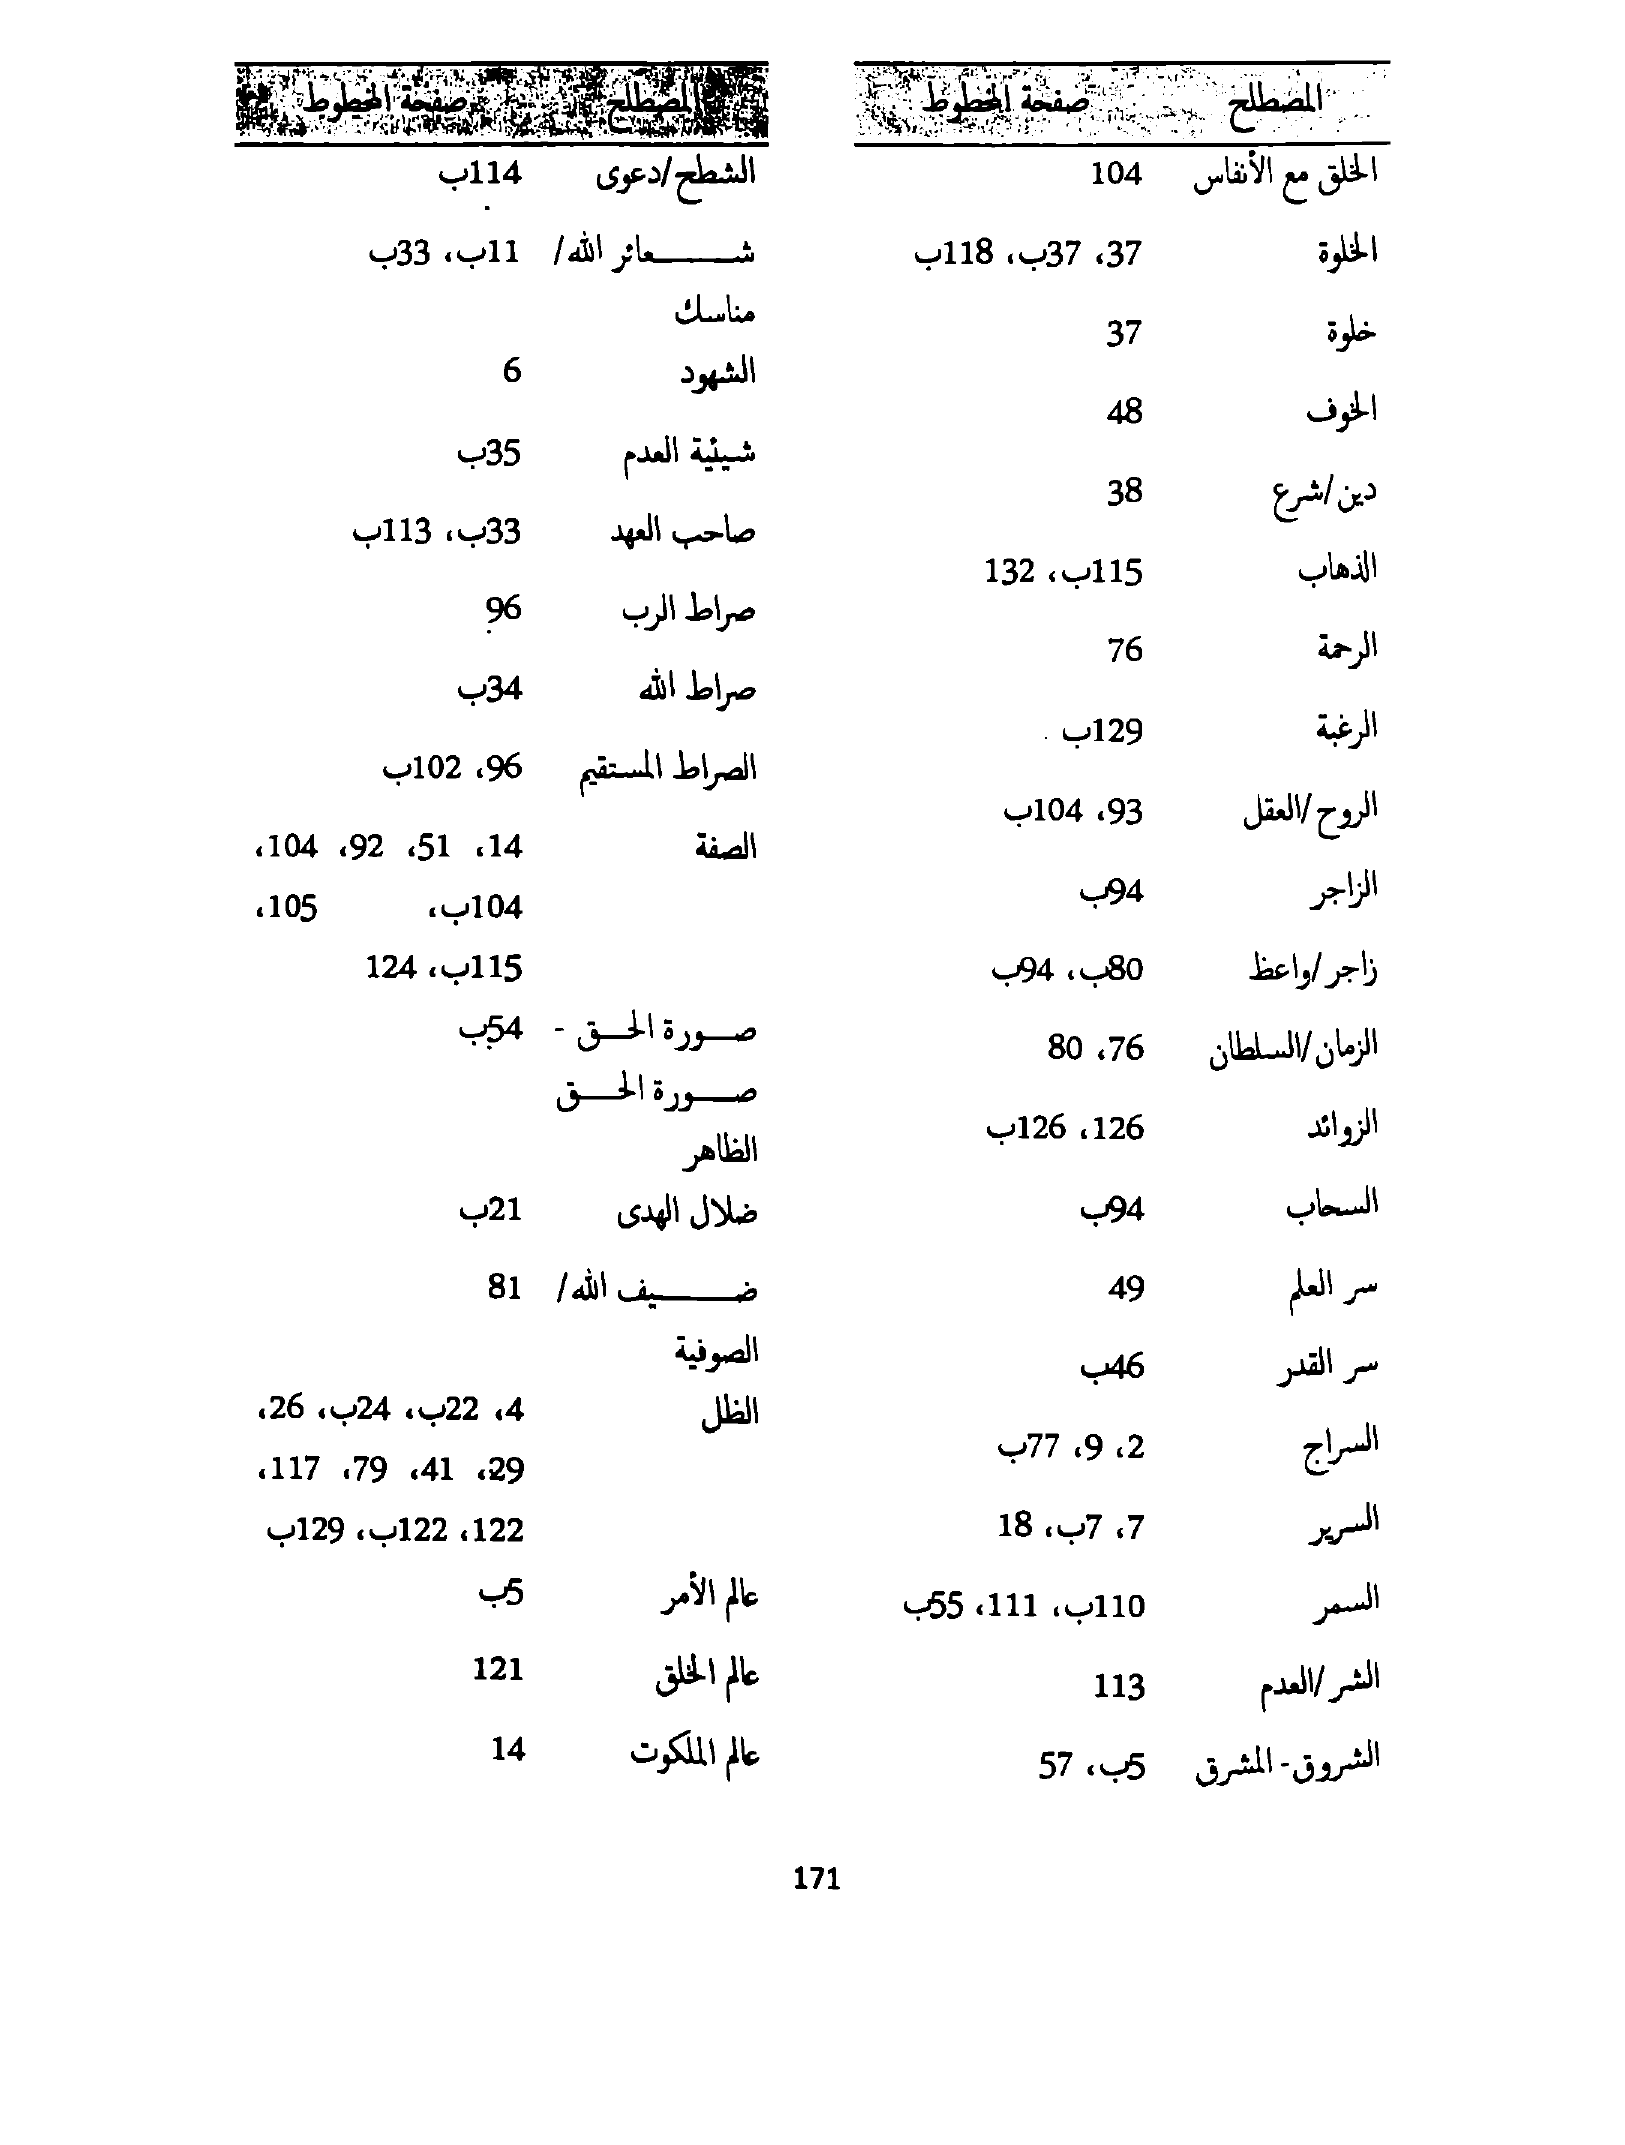 المصطلح صفحة المخطوط
الخلق مع الأنفاس 104
الخلوة 37، 37ب، 118ب
خلوة 37
الخوف 48
دين/شرع 38
الذهاب 115ب، 132
الرحمة 76
الرغبة 129ب
الروح/العقل 93، 104ب
الزاجر 94ب
زاجر/واعظ 80ب، 94ب
الزمان/السلطان 76، 80
الزوائد 126، 126ب
السحاب 94ب
سر العلم 49
سر القدر 46ب
السراج 2، 9، 77ب
السرير 7، 7ب، 18
السمر 110ب، 111، 55ب
الشر/العدم 113
الشروق- المشرق 5ب، 57
المصطلح صفحة المخطوط
الشطح/دعوى 114ب
شعائر الله/ 11ب، 33ب
مناسك
الشهود 6
شيئية العدم 35ب
صاحب العهد 33ب، 113ب
صراط الرب 96
صراط الله 34ب
الصراط المستقيم 96، 102ب
الصفة 14، 51، 92، 104،
104ب، 105،
115ب، 124
صورة الحق - 54ب
صورة الحق
الظاهر
ضلال الهدى 21ب
ضيف الله/ 81
الصوفية
الظل 4، 22ب، 24ب، 26،
29، 41، 79، 117،
122، 122ب، 129ب
عالم الأمر 5ب
عالم الخلق 121
عالم الملكوت 14
171